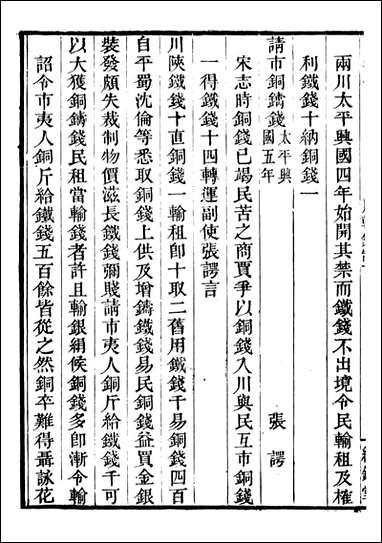 兩川太平興國四年始開其禁而鐵錢不出境令民輸租及榷
利鐵錢十納銅錢一
請市銅鑄錢太平興國五年
張諤
宋志時銅錢已竭民苦之商賈爭以銅錢入川與民互市銅錢
一得鐵錢十四轉運副使張諤言
川陝鐵錢十直銅錢一輸租卽十取二舊用鐵錢千易銅錢四百
自平蜀沈倫等悉取銅錢上供及增鑄鐵錢易民銅錢益買金銀
裝發頗失裁制物價滋長鐵錢彌賤請市夷人銅斤給鐵錢千可
以大獲銅鑄錢民租當輸錢者許且輸銀絹俟銅錢多卽漸令輸
詔令市夷人銅斤給鐵錢五百餘皆從之然銅卒難得聶詠花